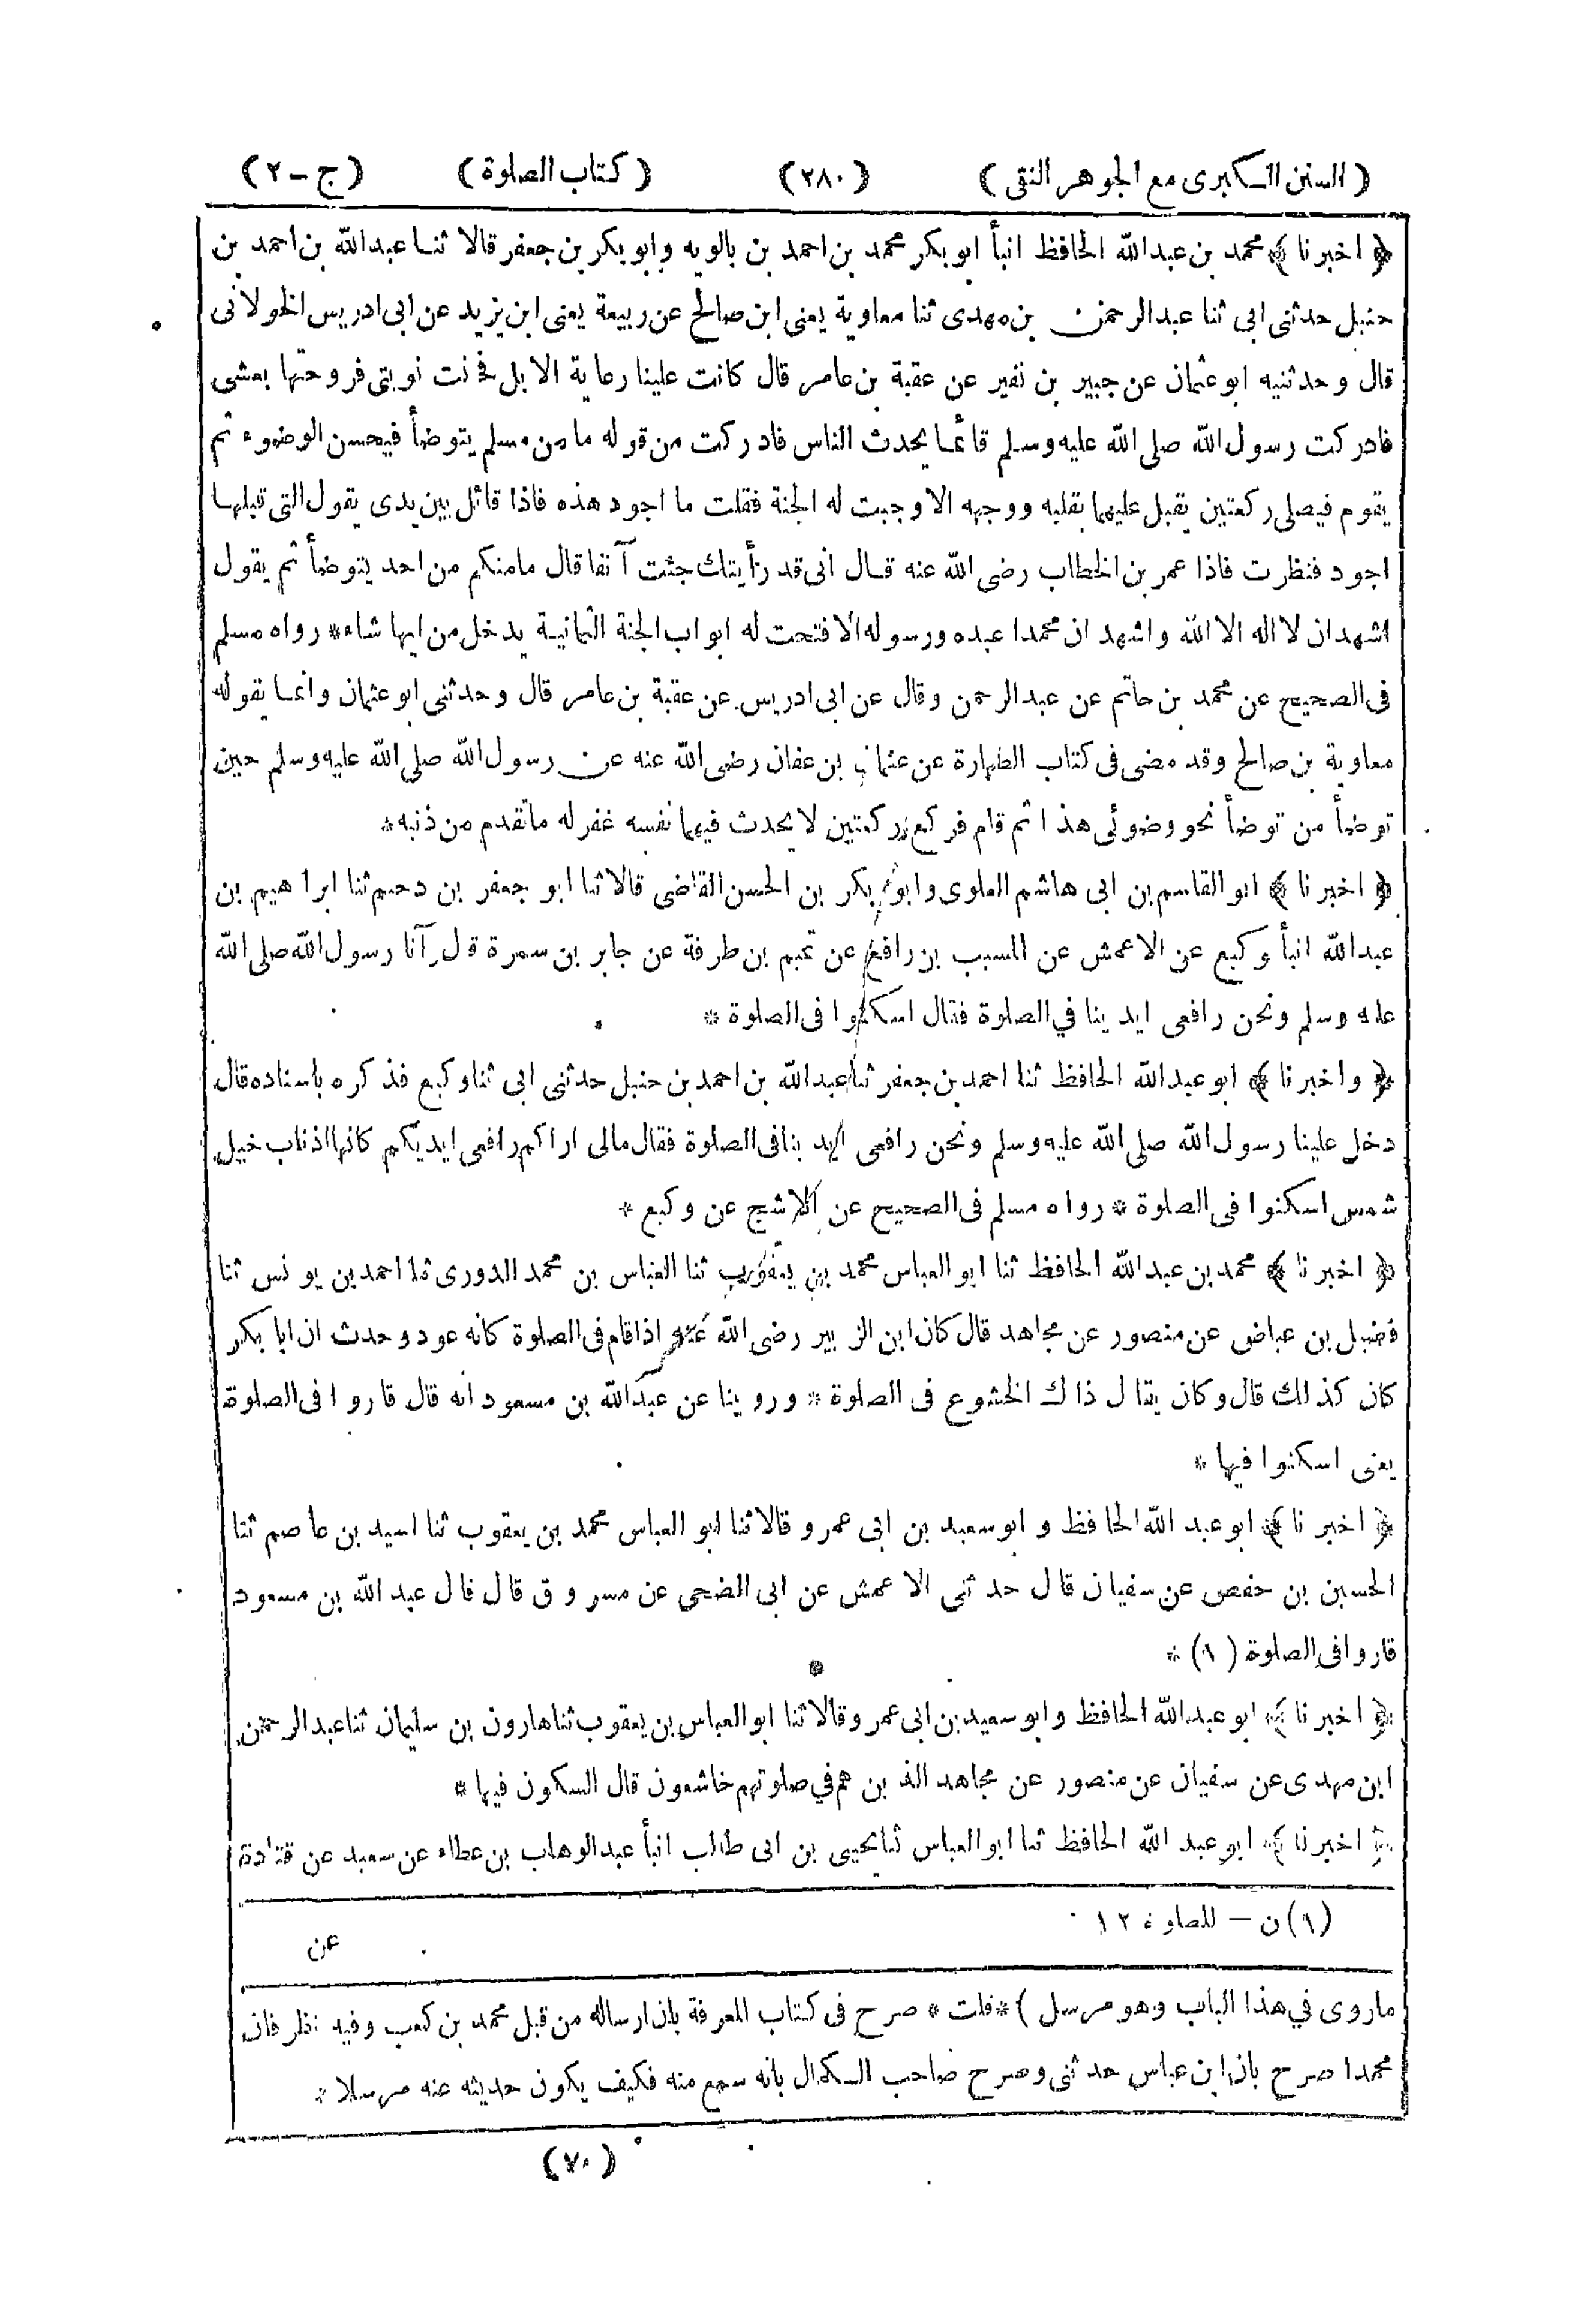 (السنن الكبرى مع الجوهر النقى) (٢٨٠) (كتاب الصلوة) (ج-٢)
﴿اخبرنا﴾ محمد بن عبدالله الحافظ انبأ ابو بكر محمد بن احمد بن بالويه وابو بكر بن جعفر قالا ثنا عبدالله بن احمد بن
حنبل حدثنى ابى ثنا عبدالرحمن بن مهدى ثنا معاوية يعنى ابن صالح عن ربيعة يعنى ابن يزيد عن ابى ادريس الخولانى
قال وحدثنيه ابو عثمان عن جبير بن نفير عن عقبة بن عامر قال كانت علينا رعاية الابل فجئت نوبتى فروحتها بعشى
فادركت رسول الله صلى الله عليه وسلم قائما يحدث الناس فادركت من قوله ما من مسلم يتوضأ فيحسن الوضوء ثم
يقوم فيصلى ركعتين يقبل عليهما بقلبه ووجهه الا وجبت له الجنة فقلت ما اجود هذه فاذا قائل بين يدى يقول التى قبلها
اجود فنظرت فاذا عمر بن الخطاب رضى الله عنه قال انى قد رأيتك جئت آنفا قال ما منكم من احد يتوضأ ثم يقول
اشهد ان لا اله الا الله واشهد ان محمدا عبده ورسوله الا فتحت له ابواب الجنة الثمانية يدخل من ايها شاء* رواه مسلم
فى الصحيح عن محمد بن حاتم عن عبد الرحمن وقال عن ابى ادريس عن عقبة بن عامر قال وحدثنى ابو عثمان وانما يقوله
معاوية بن صالح وقد مضى فى كتاب الطهارة عن عثمان بن عفان رضى الله عنه عن رسول الله صلى الله عليه وسلم حين
توضأ من توضأ نحو وضوئى هذا ثم قام فركع ركعتين لا يحدث فيهما نفسه غفر له ما تقدم من ذنبه*
﴿اخبرنا﴾ ابو القاسم بن ابى هاشم العلوى وابو بكر بن الحسن القاضى قالا ثنا ابو جعفر بن دحيم ثنا ابراهيم بن
عبدالله انبأ وكيع عن الاعمش عن المسيب بن رافع عن تميم بن طرفة عن جابر بن سمرة قال آنا رسول الله صلى الله
عليه وسلم ونحن رافعى ايدينا في الصلوة فقال اسكنوا فى الصلوة *
﴿واخبرنا﴾ ابو عبدالله الحافظ ثنا احمد بن جعفر ثنا عبدالله بن احمد بن حنبل حدثنى ابى ثنا وكيع فذكره باسناده قال
دخل علينا رسول الله صلى الله عليه وسلم ونحن رافعى ايدينا فى الصلوة فقال مالى اراكم رافعى ايديكم كانها اذناب خيل
شمس اسكنوا فى الصلوة * رواه مسلم فى الصحيح عن الاشج عن وكيع *
﴿اخبرنا﴾ محمد بن عبدالله الحافظ ثنا ابو العباس محمد بن يعقوب ثنا العباس بن محمد الدورى ثنا احمد بن يونس ثنا
فضيل بن عياض عن منصور عن مجاهد قال كان ابن الزبير رضى الله عنه اذا قام فى الصلوة كانه عود وحدث ان ابا بكر
كان كذلك قال وكان يقال ذاك الخشوع فى الصلوة * وروينا عن عبدالله بن مسعود انه قال قاروا فى الصلوة
يعنى اسكنوا فيها *
﴿اخبرنا﴾ ابو عبد الله الحافظ و ابو سعيد بن ابى عمرو قالا ثنا ابو العباس محمد بن يعقوب ثنا اسيد بن عاصم ثنا
الحسين بن حفص عن سفيان قال حدثنى الاعمش عن ابى الضحى عن مسروق قال قال عبد الله بن مسعود
قاروا فى الصلوة (١) *
﴿اخبرنا﴾ ابو عبدالله الحافظ وابو سعيد بن ابى عمرو قالا ثنا ابو العباس بن يعقوب ثنا هارون بن سليمان ثنا عبد الرحمن
ابن مهدى عن سفيان عن منصور عن مجاهد الذين هم في صلوتهم خاشعون قال السكون فيها *
﴿اخبرنا﴾ ابو عبد الله الحافظ ثنا ابو العباس ثنا يحيى بن ابى طالب انبأ عبدالوهاب بن عطاء عن سعيد عن قتادة
(١) ن – للصلوة ١٢
عن
ما روى في هذا الباب وهو مرسل) *قلت* صرح فى كتاب المعرفة بان ارساله من قبل محمد بن كعب وفيه نظر فان
محمدا صرح بان ابن عباس حدثنى وصرح صاحب الكمال بانه سمع منه فكيف يكون حديثه عنه مرسلا *
(٧٠)